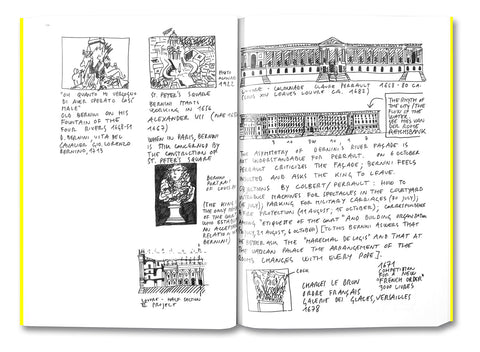 "OH QUANTO MI VERGOGNO
DI AVER OPERATO COSÌ
MALE"
OLD BERNINI ON HIS
FOUNTAIN OF THE
FOUR RIVERS 1648-51
D. BERNINI, VITA DEL
CAVALIER GIO. LORENZO
BERNINO, 1713
ST. PETER'S SQUARE
BERNINI STARTS
WORKING IN 1656
ALEXANDER VII
1667)
WHEN IN PARIS, BERNINI
IS STILL CONCERNED BY
THE CONSTRUCTION OF
ST. PETER'S SQUARE
1922
BERNINI
PORTRAIT
OF LOUIS
(THE KING
THE ONLY
OF THE
WHO
AN ACCEPT
RELATION
BERNINI)
LOUVRE - HALF SECTION
PROJECT
LOUVRE - COLONNADE CLAUDE PERRAULT 1668-80 CA.
LOUIS XIV LEAVES LOUVRE CA. 1682)
THE RHYTHM OF
THE CITY / THE
FLOW OF THE
WATER
SEE MIES VAN
DER ROHE
REICHSBANK
THE ASYMMETRY OF BERNINI'S RIVER FAÇADE IS
NOT UNDERSTANDABLE FOR PERRAULT. ON 6 OCTOBER
PERRAULT CRITICIZES THE FAÇADE; BERNINI FEELS
INSULTED AND ASKS THE KING TO LEAVE.
BY COLBERT / PERRAULT: HOW TO
INTRODUCE MACHINES FOR SPECTACLES IN THE COURTYARD
PARKING FOR MILITARY CARRIAGES (30 JULY);
FIRE PROTECTION (19 AUGUST, 15 OCTOBER); CORRESPONDENCE
AMONG "ETIQUETTE OF THE COURT" AND BUILDING ORGANIZATION
JULY, 21 AUGUST, 6 OCTOBER) [TO THIS BERNINI ANSWERS THAT
ASK THE "MARECHAL DE LOGIS" AND THAT AT
THE VATICAN PALACE THE ARRANGEMENT OF THE
ROOMS CHANGES WITH EVERY POPE].
COCK
CHARLES LE BRUN
ORDRE FRANÇAIS
GALERIE DES GLACES, VERSAILLES
1678
1671
COMPETITION
FOR A NEW
"FRENCH ORDER"
3000 LIVRES